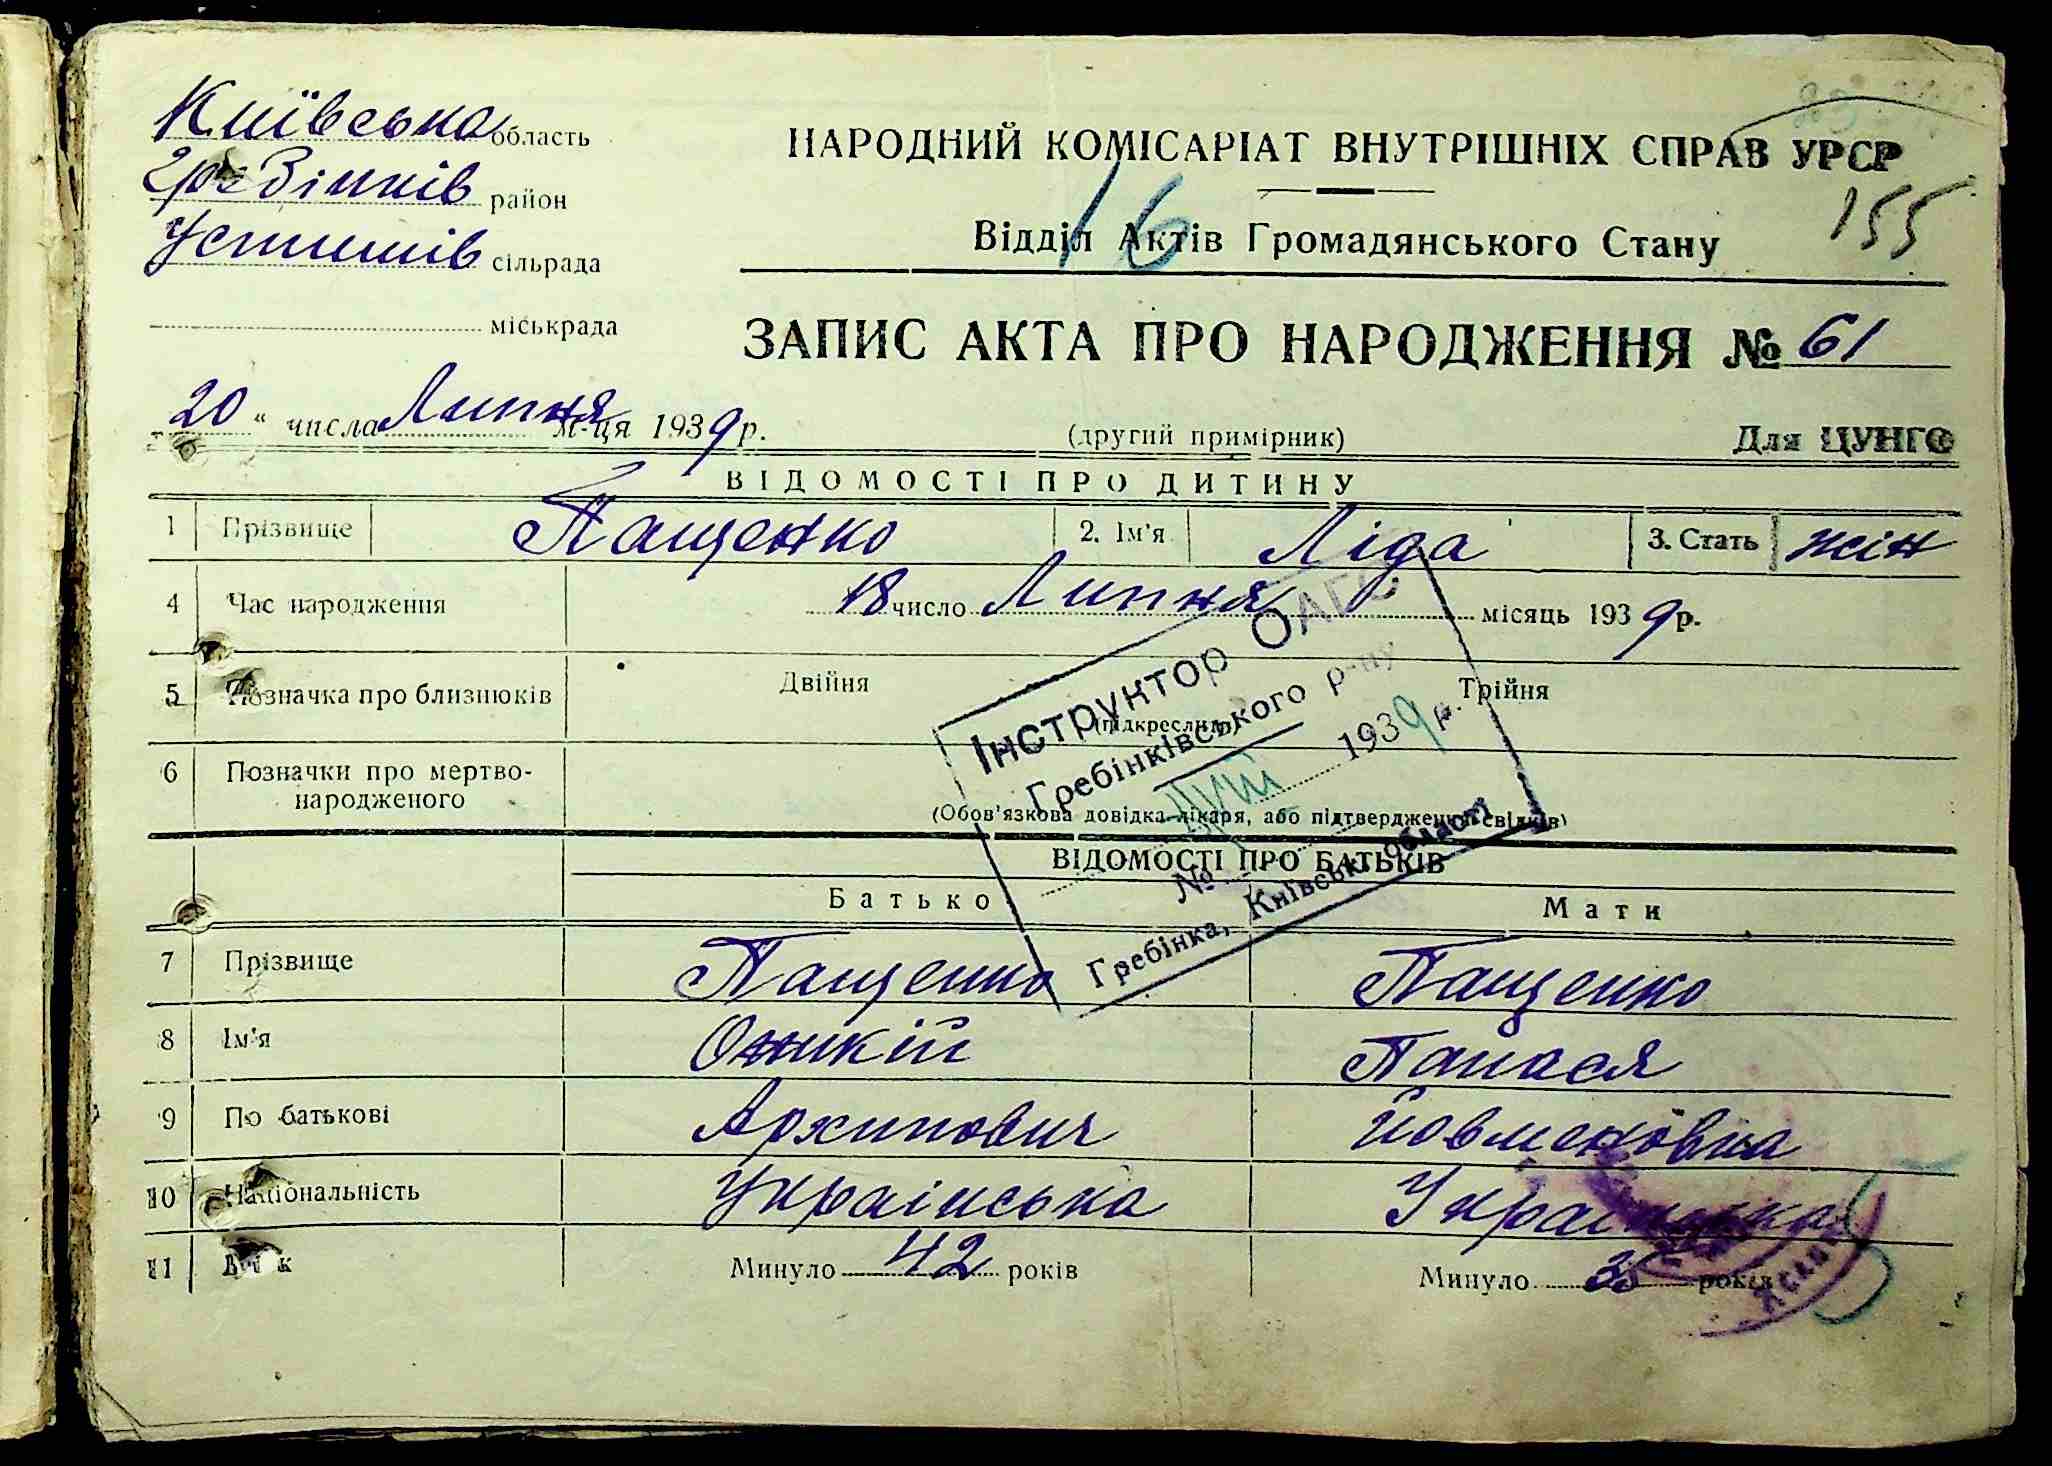 Київська область
Гребінків район
Устимів сільрада
міськрада
НАРОДНИЙ КОМІСАРІАТ ВНУТРІШНІХ СПРАВ УРСР
16
155
Відділ Актів Громадянського Стану
ЗАПИС АКТА ПРО НАРОДЖЕННЯ № 61
20 " числа Липня м-ця 1939 р.
(другий примірник)
Для ЦУНГО
ВІДОМОСТІ ПРО ДИТИНУ
1 Прізвище Пащенко 2. Ім'я Ліда 3. Стать жін
4 Час народження 18 число Липня місяць 1939 р.
5 Позначка про близнюків Двійня Трійня
(підкреслить)
6 Позначки про мертво-
народженого
(Обов'язкова довідка лікаря, або підтвердження свідків)
Інструктор ОАГС
Гребінківського р-ну
1939 р.
№
Гребінка, Київськ. області
ВІДОМОСТІ ПРО БАТЬКІВ
Батько Мати
7 Прізвище Пащенко Пащенко
8 Ім'я Оникій Панася
9 По батькові Архипович Йовменовна
10 Національність Українська Українська
11 Вік Минуло 42 років Минуло 35 років